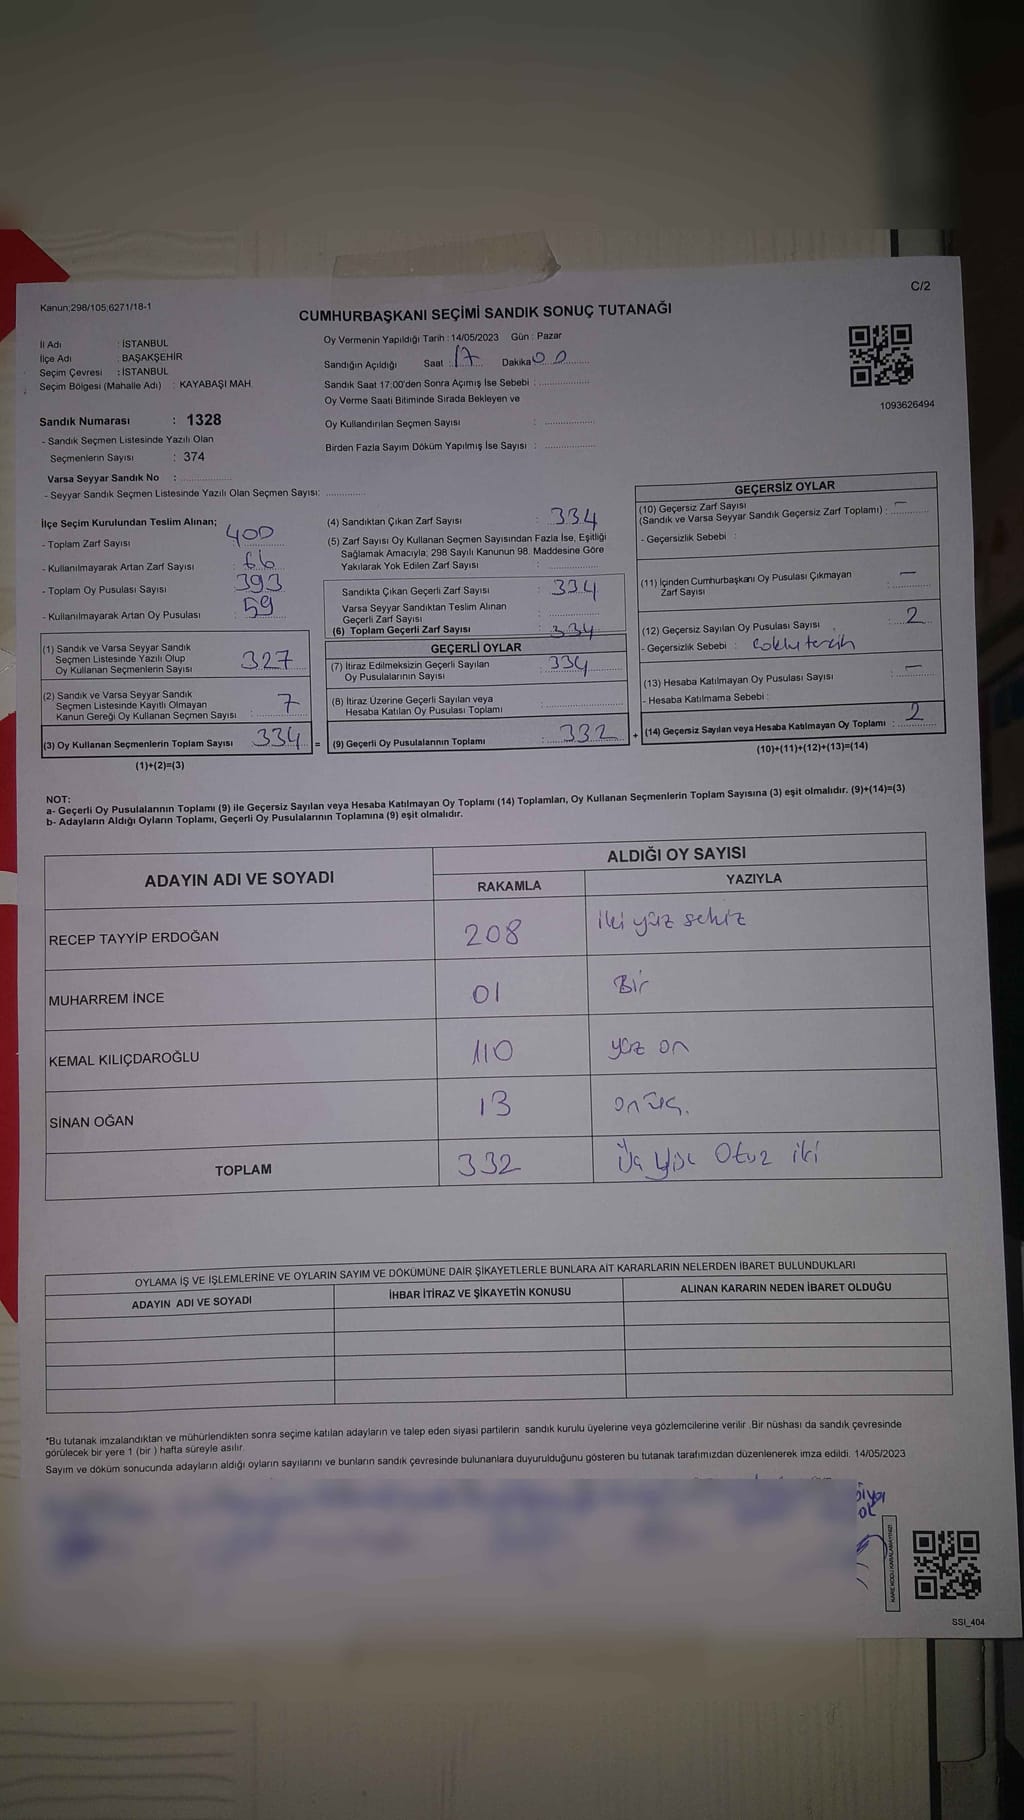 C/2
Kanun;298/105;6271/18-1
CUMHURBAŞKANI SEÇİMİ SANDIK SONUÇ TUTANAĞI
İl Adı : İSTANBUL
İlçe Adı : BAŞAKŞEHİR
Seçim Çevresi : İSTANBUL
Seçim Bölgesi (Mahalle Adı) : KAYABAŞI MAH.
Oy Vermenin Yapıldığı Tarih : 14/05/2023 Gün : Pazar
Sandığın Açıldığı Saat : 17 Dakika 00
Sandık Saat 17:00'den Sonra Açımış İse Sebebi :
Oy Verme Saati Bitiminde Sırada Bekleyen ve
Oy Kullandırılan Seçmen Sayısı :
Birden Fazla Sayım Döküm Yapılmış İse Sayısı :
1093626494
Sandık Numarası : 1328
- Sandık Seçmen Listesinde Yazılı Olan
Seçmenlerin Sayısı : 374
Varsa Seyyar Sandık No :
- Seyyar Sandık Seçmen Listesinde Yazılı Olan Seçmen Sayısı:
İlçe Seçim Kurulundan Teslim Alınan;
- Toplam Zarf Sayısı 400
- Kullanılmayarak Artan Zarf Sayısı : 66
- Toplam Oy Pusulası Sayısı 393
- Kullanılmayarak Artan Oy Pusulası : 59
(1) Sandık ve Varsa Seyyar Sandık
Seçmen Listesinde Yazılı Olup
Oy Kullanan Seçmenlerin Sayısı 327
(2) Sandık ve Varsa Seyyar Sandık
Seçmen Listesinde Kayıtlı Olmayan
Kanun Gereği Oy Kullanan Seçmen Sayısı : 7
(3) Oy Kullanan Seçmenlerin Toplam Sayısı 334 =
(1)+(2)=(3)
(4) Sandıktan Çıkan Zarf Sayısı : 334
(5) Zarf Sayısı Oy Kullanan Seçmen Sayısından Fazla İse, Eşitliği
Sağlamak Amacıyla; 298 Sayılı Kanunun 98. Maddesine Göre
Yakılarak Yok Edilen Zarf Sayısı :
Sandıkta Çıkan Geçerli Zarf Sayısı : 334
Varsa Seyyar Sandıktan Teslim Alınan
Geçerli Zarf Sayısı
(6) Toplam Geçerli Zarf Sayısı : 334
GEÇERLİ OYLAR
(7) İtiraz Edilmeksizin Geçerli Sayılan
Oy Pusulalarının Sayısı : 334
(8) İtiraz Üzerine Geçerli Sayılan veya
Hesaba Katılan Oy Pusulası Toplamı :
(9) Geçerli Oy Pusulalarının Toplamı : 332 +
GEÇERSİZ OYLAR
(10) Geçersiz Zarf Sayısı
(Sandık ve Varsa Seyyar Sandık Geçersiz Zarf Toplamı) : —
- Geçersizlik Sebebi :
(11) İçinden Cumhurbaşkanı Oy Pusulası Çıkmayan
Zarf Sayısı : —
(12) Geçersiz Sayılan Oy Pusulası Sayısı : 2
- Geçersizlik Sebebi : Çoklu tercih
(13) Hesaba Katılmayan Oy Pusulası Sayısı : —
- Hesaba Katılmama Sebebi :
(14) Geçersiz Sayılan veya Hesaba Katılmayan Oy Toplamı : 2
(10)+(11)+(12)+(13)=(14)
NOT:
a- Geçerli Oy Pusulalarının Toplamı (9) ile Geçersiz Sayılan veya Hesaba Katılmayan Oy Toplamı (14) Toplamları, Oy Kullanan Seçmenlerin Toplam Sayısına (3) eşit olmalıdır. (9)+(14)=(3)
b- Adayların Aldığı Oyların Toplamı, Geçerli Oy Pusulalarının Toplamına (9) eşit olmalıdır.
ADAYIN ADI VE SOYADI ALDIĞI OY SAYISI
RAKAMLA YAZIYLA
RECEP TAYYİP ERDOĞAN 208 iki yüz sekiz
MUHARREM İNCE 01 Bir
KEMAL KILIÇDAROĞLU 110 yüz on
SİNAN OĞAN 13 onüç.
TOPLAM 332 Üç yüz Otuz iki
OYLAMA İŞ VE İŞLEMLERİNE VE OYLARIN SAYIM VE DÖKÜMÜNE DAİR ŞİKAYETLERLE BUNLARA AİT KARARLARIN NELERDEN İBARET BULUNDUKLARI
ADAYIN ADI VE SOYADI İHBAR İTİRAZ VE ŞİKAYETİN KONUSU ALINAN KARARIN NEDEN İBARET OLDUĞU
*Bu tutanak imzalandıktan ve mühürlendikten sonra seçime katılan adayların ve talep eden siyasi partilerin sandık kurulu üyelerine veya gözlemcilerine verilir .Bir nüshası da sandık çevresinde
görülecek bir yere 1 (bir ) hafta süreyle asılır.
Sayım ve döküm sonucunda adayların aldığı oyların sayılarını ve bunların sandık çevresinde bulunanlara duyurulduğunu gösteren bu tutanak tarafımızdan düzenlenerek imza edildi. 14/05/2023
KARE KODU KARALAMAYINIZ!
SSI_404